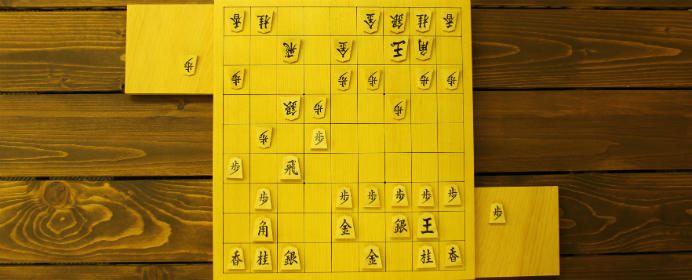 香 桂 金 銀 桂 香
飛 金 王 角
歩
歩 歩 歩 歩 歩
銀 歩 歩
歩 歩
歩 飛
歩 歩 歩 歩 歩 歩
歩
角 金 銀 王
香 桂 銀 金 桂 香